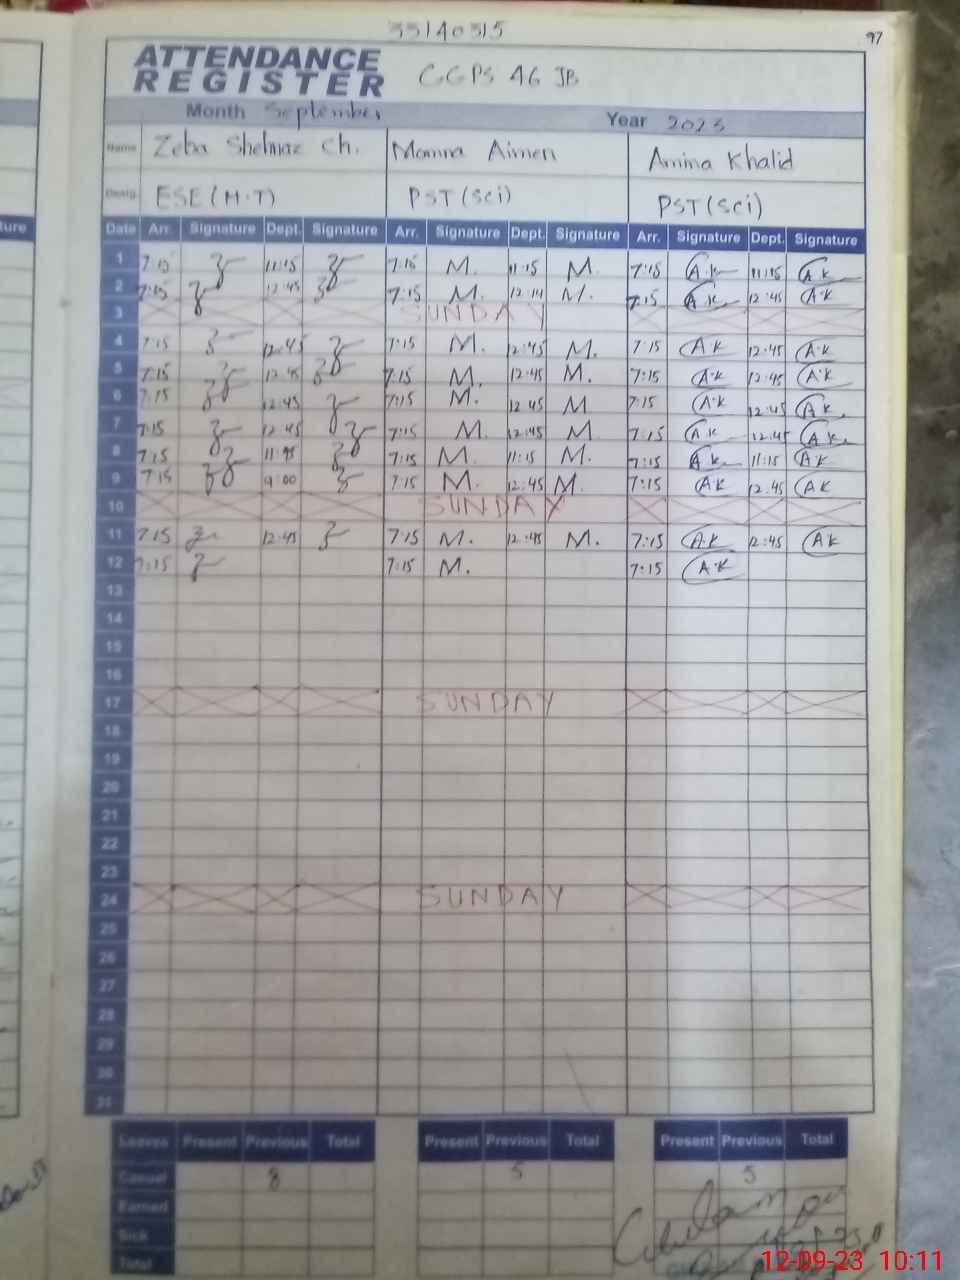 33140315
97
ATTENDANCE
REGISTER
GGPS 46 JB
Month September Year 2023
Name Zeba Shehnaz Ch. Momna Aimen Amina Khalid
Desig. ESE (H.T) PST (Sci) PST (Sci)
ture Date Arr. Signature Dept. Signature Arr. Signature Dept. Signature Arr. Signature Dept. Signature
1 7:15 11:15 7:15 M. 11:15 M. 7:15 A.K 11:15 A.K
2 7:15 12:45 7:15 M. 12:14 M. 7:15 A.K 12:45 A.K
3 SUNDAY
4 7:15 12:45 7:15 M. 12:45 M. 7:15 A.K 12:45 A.K
5 7:15 12:45 7:15 M. 12:45 M. 7:15 A.K 12:45 A.K
6 7:15 12:45 7:15 M. 12:45 M 7:15 A.K 12:45 A.K
7 7:15 12:45 7:15 M. 12:45 M. 7:15 A.K 12:45 A.K
8 7:15 7:15 M. 11:15 M. 7:15 A.K 11:15 A.K
9 7:15 9:00 7:15 M. 12:45 M. 7:15 A.K 12:45 A.K
10 SUNDAY
11 7:15 12:45 7:15 M. 12:45 M. 7:15 A.K 12:45 A.K
12 7:15 7:15 M. 7:15 A.K
13
14
15
16
17 SUNDAY
18
19
20
21
22
23
24 SUNDAY
25
26
27
28
29
30
31
Leaves Present Previous Total Present Previous Total Present Previous Total
Casual 8 5 5
Earned
Sick
Total
12-09-23 10:11